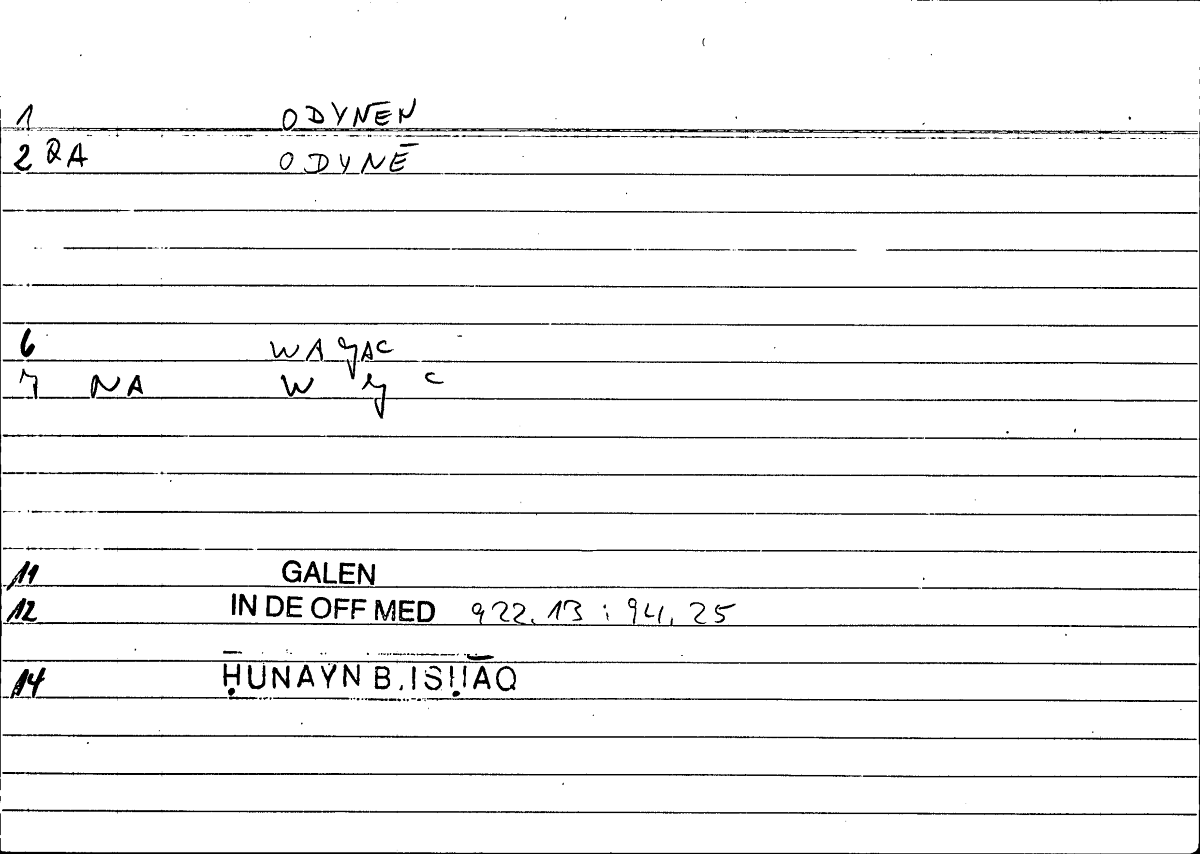 1 ODYNĒN
2 QA ODYNĒ
6 WAǦAC
7 NA W Ǧ C
11 GALEN
12 IN DE OFF MED 922.13 : 94.25
14 ḤUNAYN B. ISḤĀQ